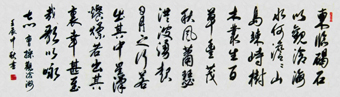 東臨碣石
以觀滄海
水何澹澹山
島竦峙樹
木叢生百
草豐茂
秋風蕭瑟
洪波湧起
日月之行若
出其中星漢
燦爛若出其
裏幸甚至
哉歌以詠
志 曹操觀滄海
壬辰年秋